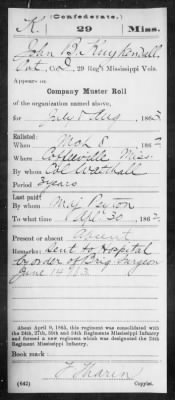 (Confederate.)
K. 29 Miss.
John B. Kuykendall,
Co. , 29 Reg't Mississippi Vols.
Appears on
Company Muster Roll
of the organization named above,
for July & Aug, 1862
Enlisted:
When Mch 8 1862
Where Coffeeville Miss.
By whom Col Walthall
Period 3 years
Last paid:
By whom Maj Peyton
To what time Apl 30 1862
Present or absent Absent
Remarks: Sent to Hospital
by order of Brig. Surgeon
June 14
About April 9, 1865, this regiment was consolidated with
the 24th, 27th, 30th and 34th Regiments Mississippi Infantry
and formed a new regiment which was designated the 24th
Regiment Mississippi Infantry.
Book mark:
F Tharin
(642) Copyist.